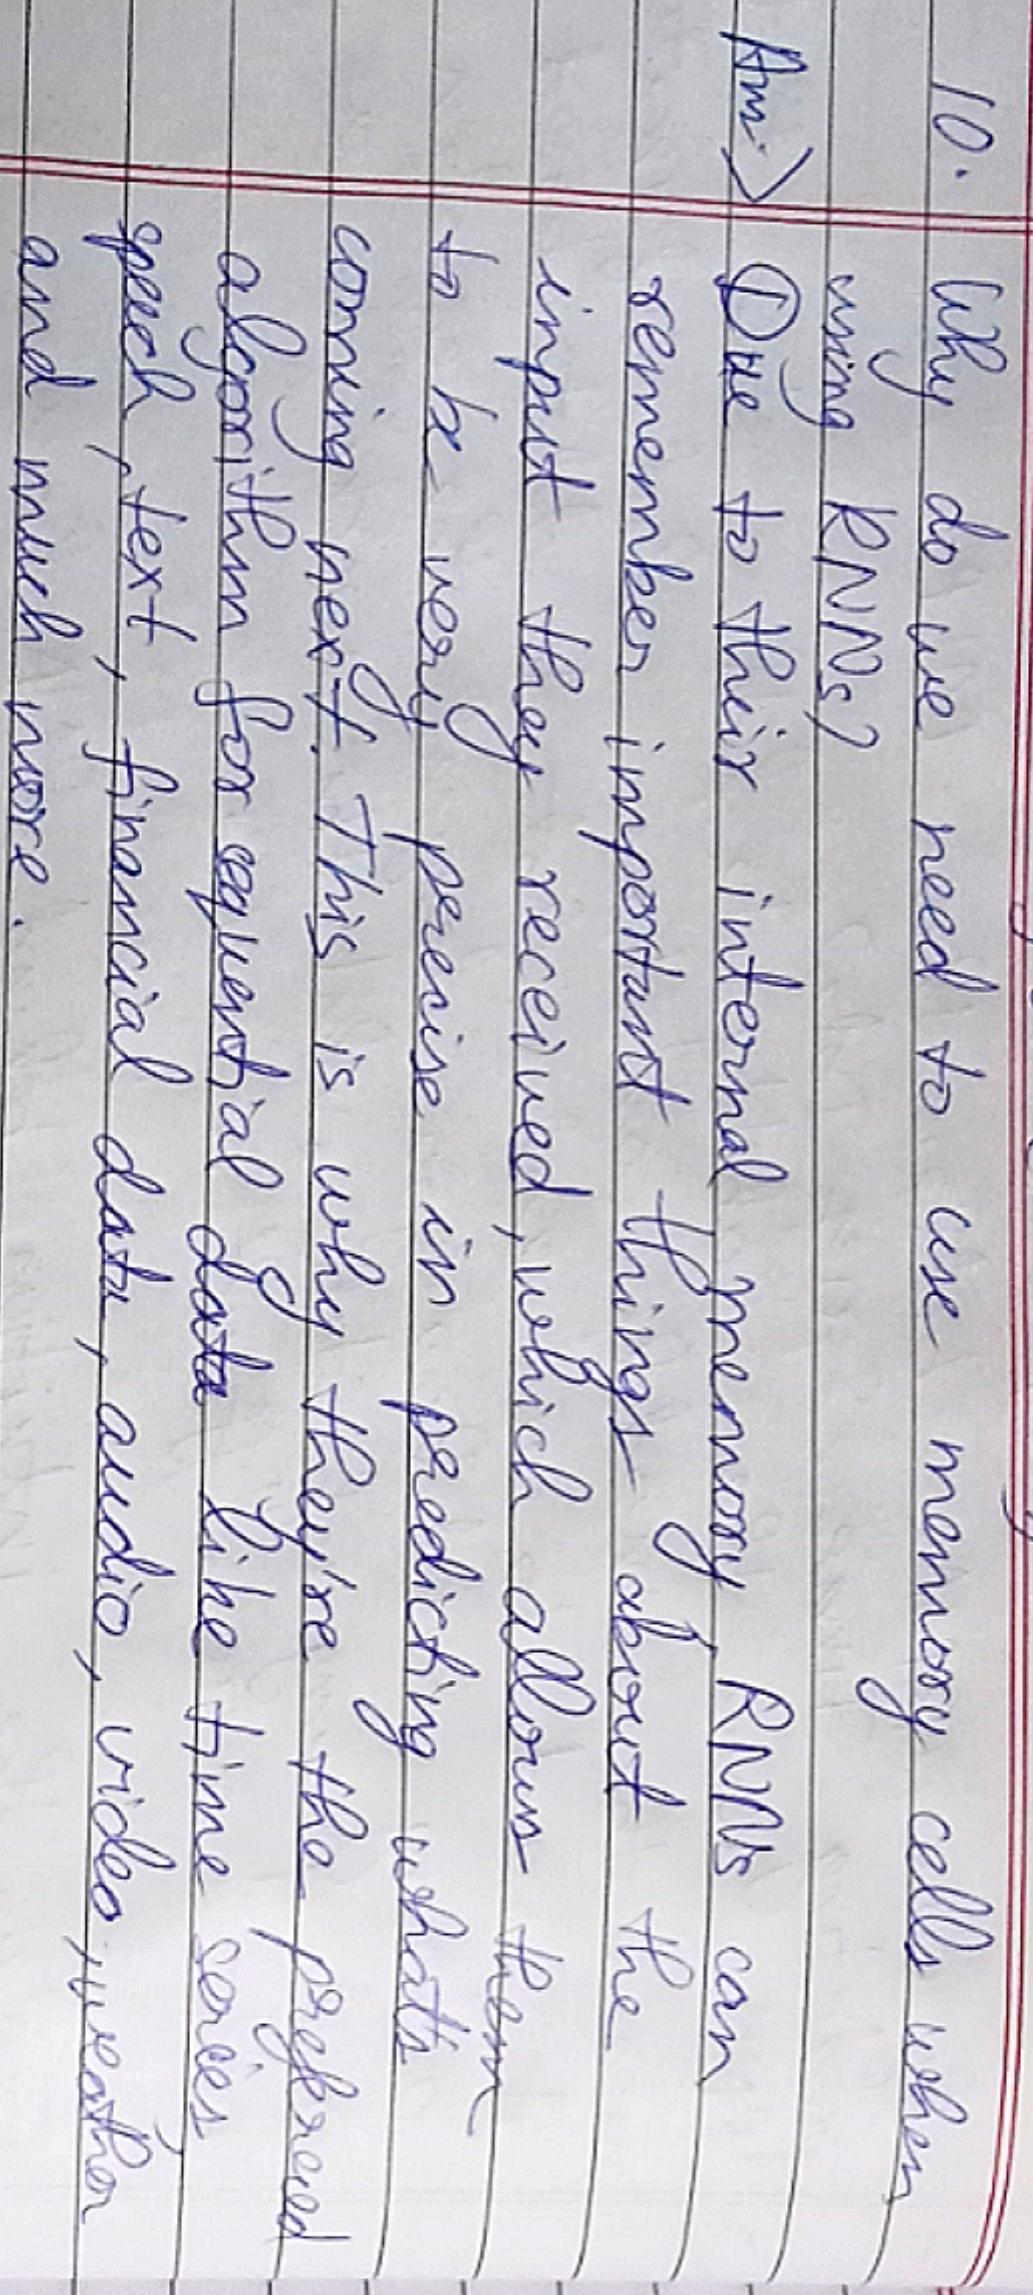 10. Why do we need to use memory cells when
using RNNs?
Ans> Due to their internal memory, RNNs can
remember important things about the
input they received, which allows them
to be very precise in predicting what's
coming next. This is why they're the prefered
algorithm for sequential data like time series,
speech, text, financial data, audio, video, weather
and much more.